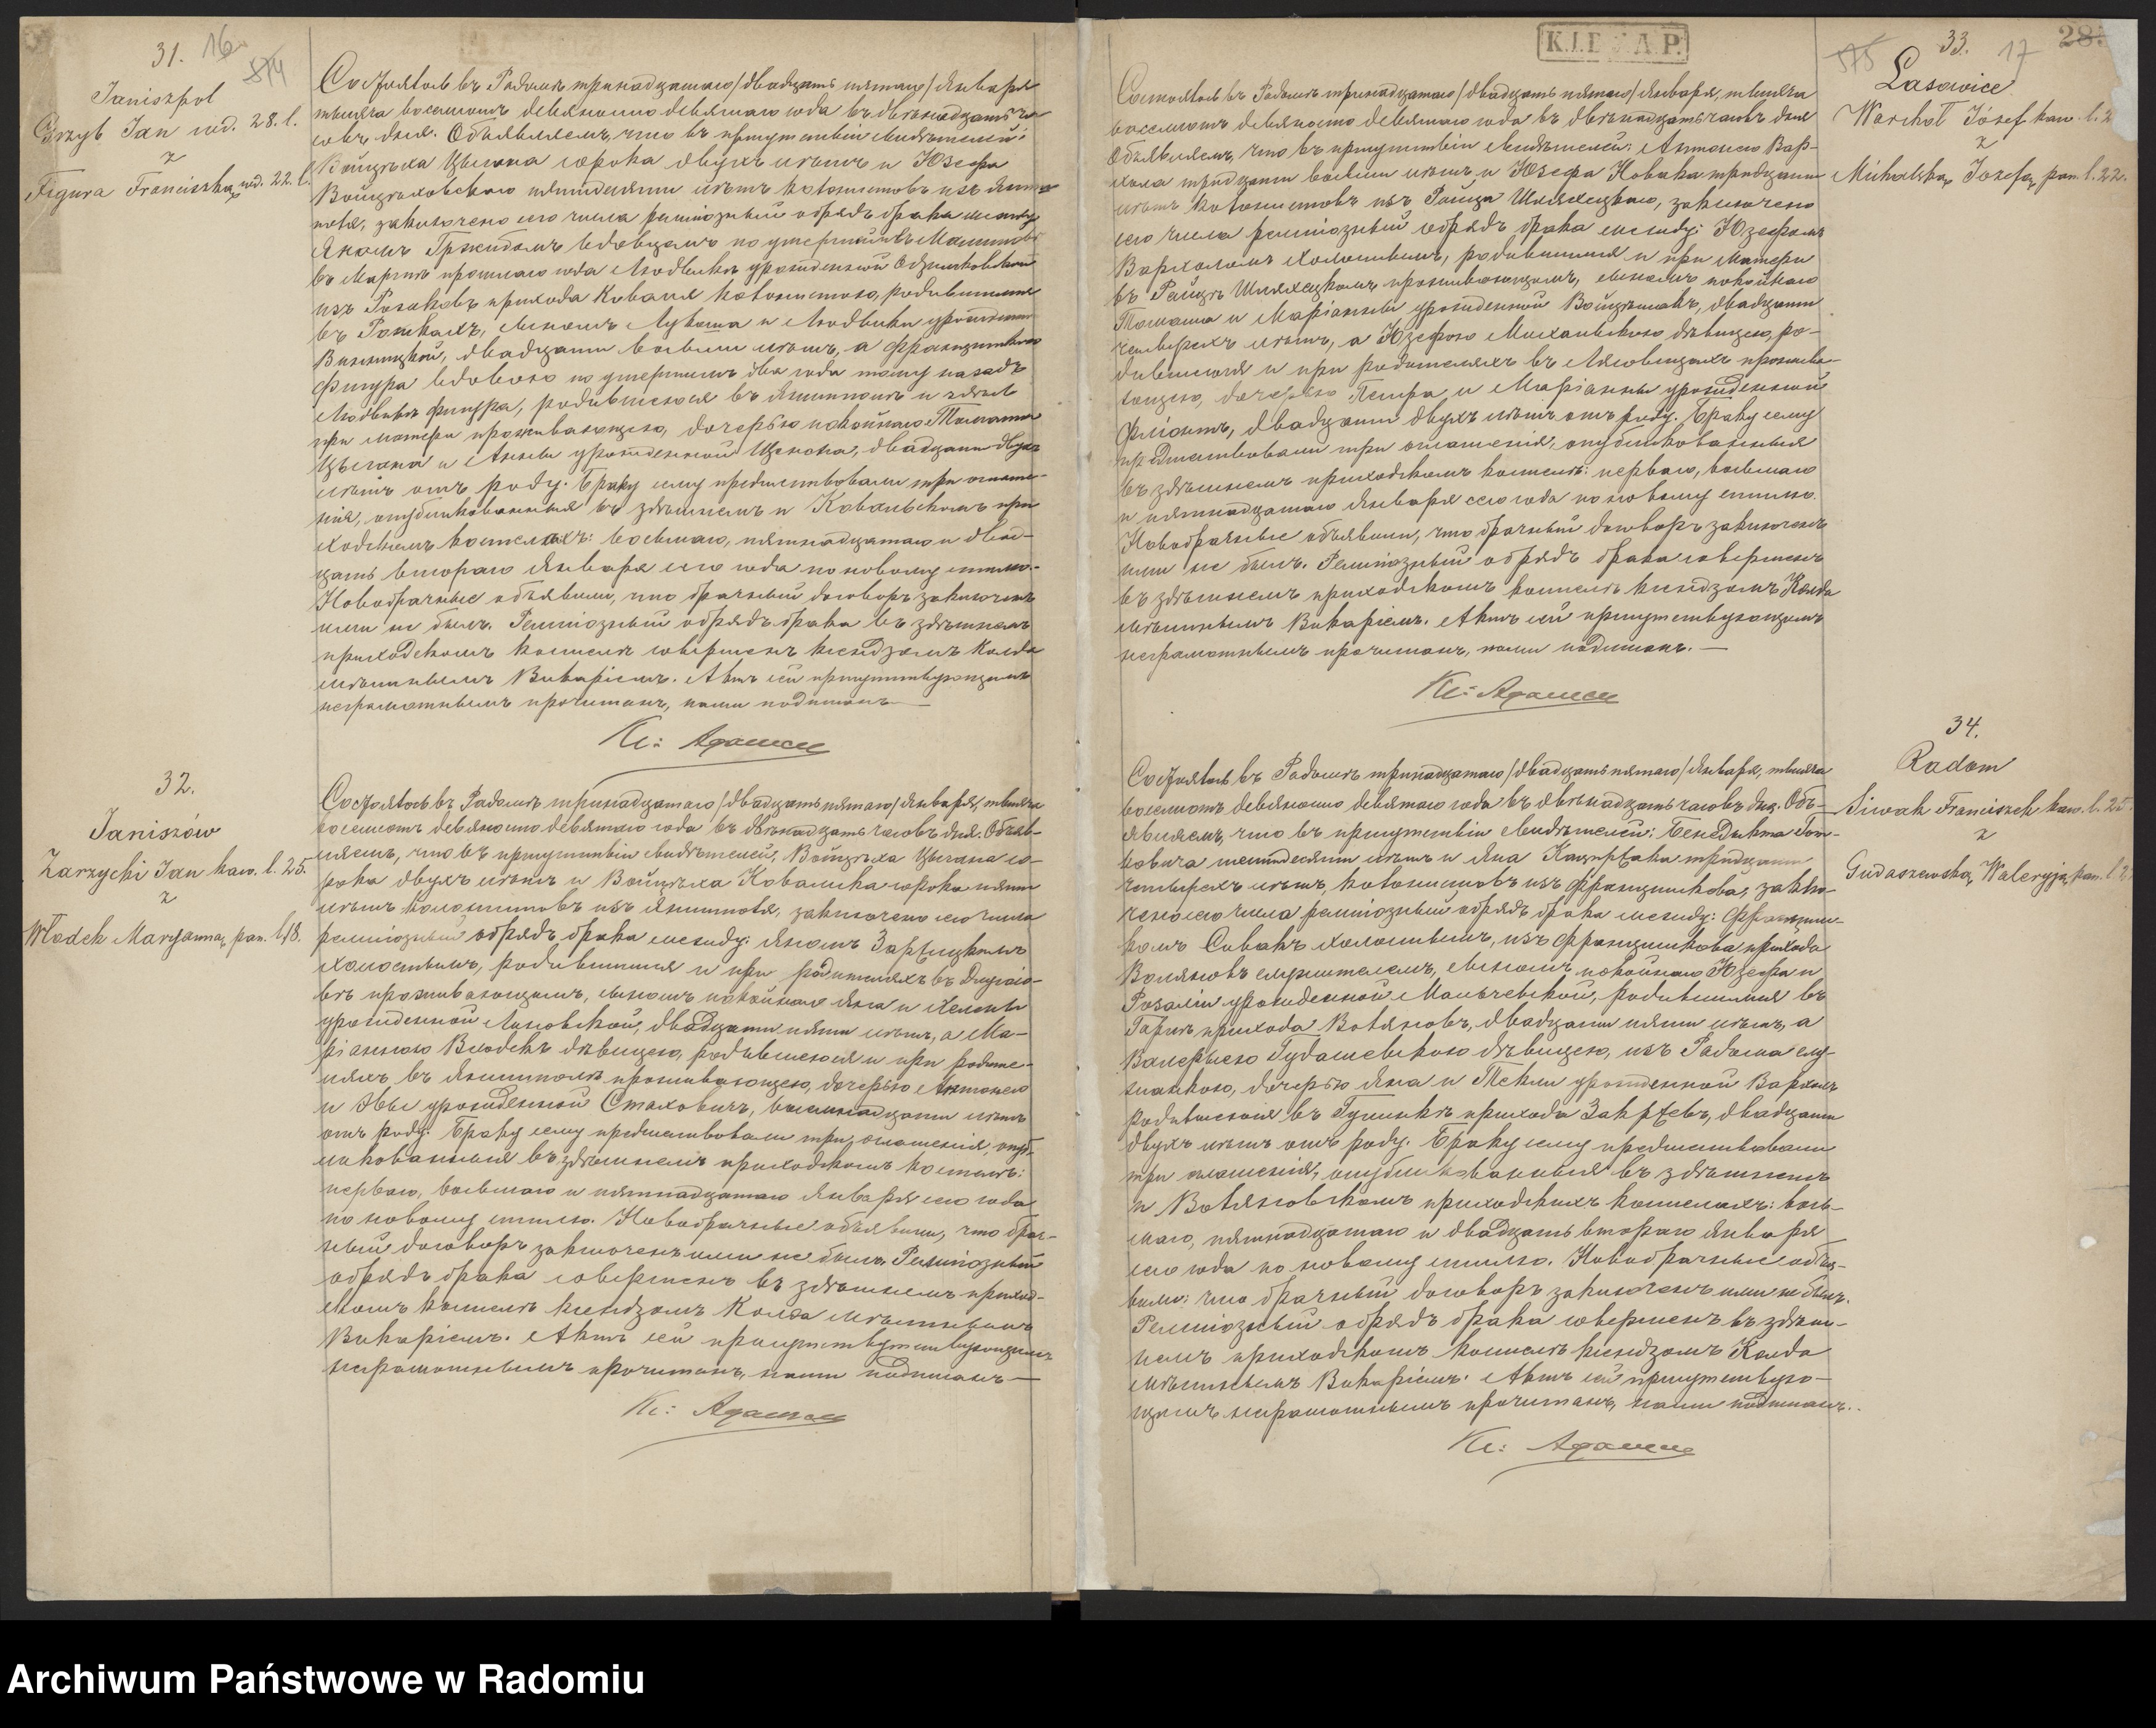 31.
16
574
Janiszpol
Grzyb Jan wd. 28. l.
z
Figura Franciszką wd. 22. l.
Состоялось въ Радомѣ тринадцатаго /двадцать пятаго/ Января
тысяча восемьсотъ девяносто девятаго года въ двѣнадцать ча-
совъ дня. Объявляемъ, что въ присутствіи свидѣтелей:
Войцѣха Цыгана сорока двухъ лѣтъ и Юзефа
Войцѣховскаго пятидесяти лѣтъ колонистовъ изъ Яниш-
поля, заключено сего числа религіозный обрядъ брака между
Яномъ Гржибомъ вдовцомъ по умершей въ
въ Мартѣ прошлаго года Людвикѣ урожденной
изъ прихода Коваля колонистомъ, родившимся
въ сыномъ Лукаша и Людвики урожденной
двадцати восьми лѣтъ, а Францишкою
Фигура вдовою по умершимъ два года тому назадъ
Людвикѣ Фигура, родившеюся въ Янишполѣ и здѣсь
при матери проживающею, дочерью покойнаго Томаша
Цыгана и Анны урожденной двадцати двухъ
лѣтъ отъ роду. Браку сему предшествовали три оглаше-
нія, опубликованныя въ здѣшнемъ и Ковальскомъ при-
ходскомъ костелахъ: восьмаго, пятнадцатаго и двад-
цать втораго Января сего года по новому стилю.
Новобрачные объявили, что брачный договоръ заключенъ
ими не былъ. Религіозный обрядъ брака въ здѣшнемъ
приходскомъ костелѣ совершенъ ксендзомъ Колда
мѣстнымъ Викаріемъ. Актъ сей присутствующимъ
неграмотнымъ прочитанъ, нами подписанъ
Кс:
32.
Janiszów
Zarzycki Jan kaw. l. 25.
z
Włodek Maryanną pan. l. 18.
Состоялось въ Радомѣ тринадцатаго /двадцать пятаго/ Января, тысяча
восемьсотъ девяносто девятаго года въ двѣнадцать часовъ дня. Объяв-
ляемъ, что въ присутствіи свидѣтелей, Войцѣха Цыгана со-
рока двухъ лѣтъ и Войцѣха Ковальска сорока пяти
лѣтъ колонистовъ изъ Янишполя, заключено сего числа
религіозный обрядъ брака между: Яномъ Заржицкимъ
холостымъ, родившимся и при родителяхъ въ
проживающимъ, сыномъ покойнаго Яна и Хелены
урожденной Липовской, двадцати пяти лѣтъ, а Ма-
ріанною Влодекъ дѣвицею, родившеюся и при родите-
ляхъ въ Янишполѣ проживающею, дочерью Антонего
и Эвы урожденной Стаховичъ, восемнадцати лѣтъ
отъ роду. Браку сему предшествовали три оглашенія, опуб-
ликованныя въ здѣшнемъ приходскомъ костелѣ:
перваго, восьмаго и пятнадцатаго Января сего года
по новому стилю. Новобрачные объявили, что брач-
ный договоръ заключенъ ими не былъ. Религіозный
обрядъ брака совершенъ въ здѣшнемъ приход-
скомъ костелѣ ксендзомъ Колда мѣстнымъ
Викаріемъ. Актъ сей
неграмотнымъ прочитанъ, нами подписанъ
Кс:
K.I.E. J.A.P.
575
33.
17
28.
Lasowice
Warchoł Józef kaw. l. 2
z
Michalską Józefą pan. l. 22.
Состоялось въ Радомѣ тринадцатаго /двадцать пятаго/ Января, тысяча
восемьсотъ девяносто девятаго года въ двѣнадцать часовъ дня
Объявляемъ, что въ присутствіи свидѣтелей: Антонего Вар-
хола тридцати восьми лѣтъ, и Юзефа Новака тридцати
лѣтъ колонистовъ изъ Райца Шляхецкаго, заключено
сего числа религіозный обрядъ брака между: Юзефомъ
Вархоломъ холостымъ, родившимся и при матери
въ Райцѣ Шляхецкомъ проживающимъ, сыномъ покойнаго
Томаша и Маріанны урожденной двадцати
четырехъ лѣтъ, а Юзефою Михальскою дѣвицею, ро-
дившеюся и при родителяхъ въ Лясовицахъ прожива-
ющею, дочерью Петра и Маріанны урожденной
двадцати двухъ лѣтъ отъ роду. Браку сему
предшествовали три оглашенія, опубликованныя
въ здѣшнемъ приходскомъ костелѣ: перваго, восьмаго
и пятнадцатаго Января сего года по новому стилю.
Новобрачные объявили, что брачный договоръ заключенъ
ими не былъ. Религіозный обрядъ брака совершенъ
въ здѣшнемъ приходскомъ костелѣ ксендзомъ Колда
мѣстнымъ Викаріемъ. Актъ сей присутствующимъ
неграмотнымъ прочитанъ, нами подписанъ.
Кс:
34.
Radom
Siwak Franciszek kaw. l. 25.
z
Gudaszewską Waleryją pan. l. 2
Состоялось въ Радомѣ тринадцатаго /двадцать пятаго/ Января, тысяча
восемьсотъ девяносто девятаго года въ двѣнадцать часовъ дня. Объ-
являемъ, что въ присутствіи свидѣтелей: Бенедикта
шестидесяти лѣтъ и Яна Кацпржака тридцати
четырехъ лѣтъ, колонистовъ изъ Францишкова, заклю-
чено сего числа религіозный обрядъ брака между: Францишко-
комъ Сивакъ холостымъ, изъ Францишкова прихода
Воляновъ служителемъ, сыномъ покойнаго Юзефа и
Розаліи урожденной Мальчевской, родившимся въ
прихода Воляновъ, двадцати пяти лѣтъ, а
Валерыею Гудашевскою дѣвицею, изъ Радома слу-
жанкою, дочерью Яна и Теклы урожденной Вархолъ
родившеюся въ прихода Закржевъ, двадцати
двухъ лѣтъ отъ роду. Браку сему предшествовали
три оглашенія, опубликованныя въ здѣшнемъ
и Воляновскомъ приходскихъ костелахъ: вось-
маго, пятнадцатаго и двадцать втораго Января
сего года по новому стилю. Новобрачные объя-
вили: что брачный договоръ заключенъ ими не былъ.
Религіозный обрядъ брака совершенъ въ здѣш-
немъ приходскомъ костелѣ ксендзомъ Колда
мѣстнымъ Викаріемъ. Актъ сей присутствую-
щимъ неграмотнымъ прочитанъ, нами подписанъ.
Кс:
Archiwum Państwowe w Radomiu